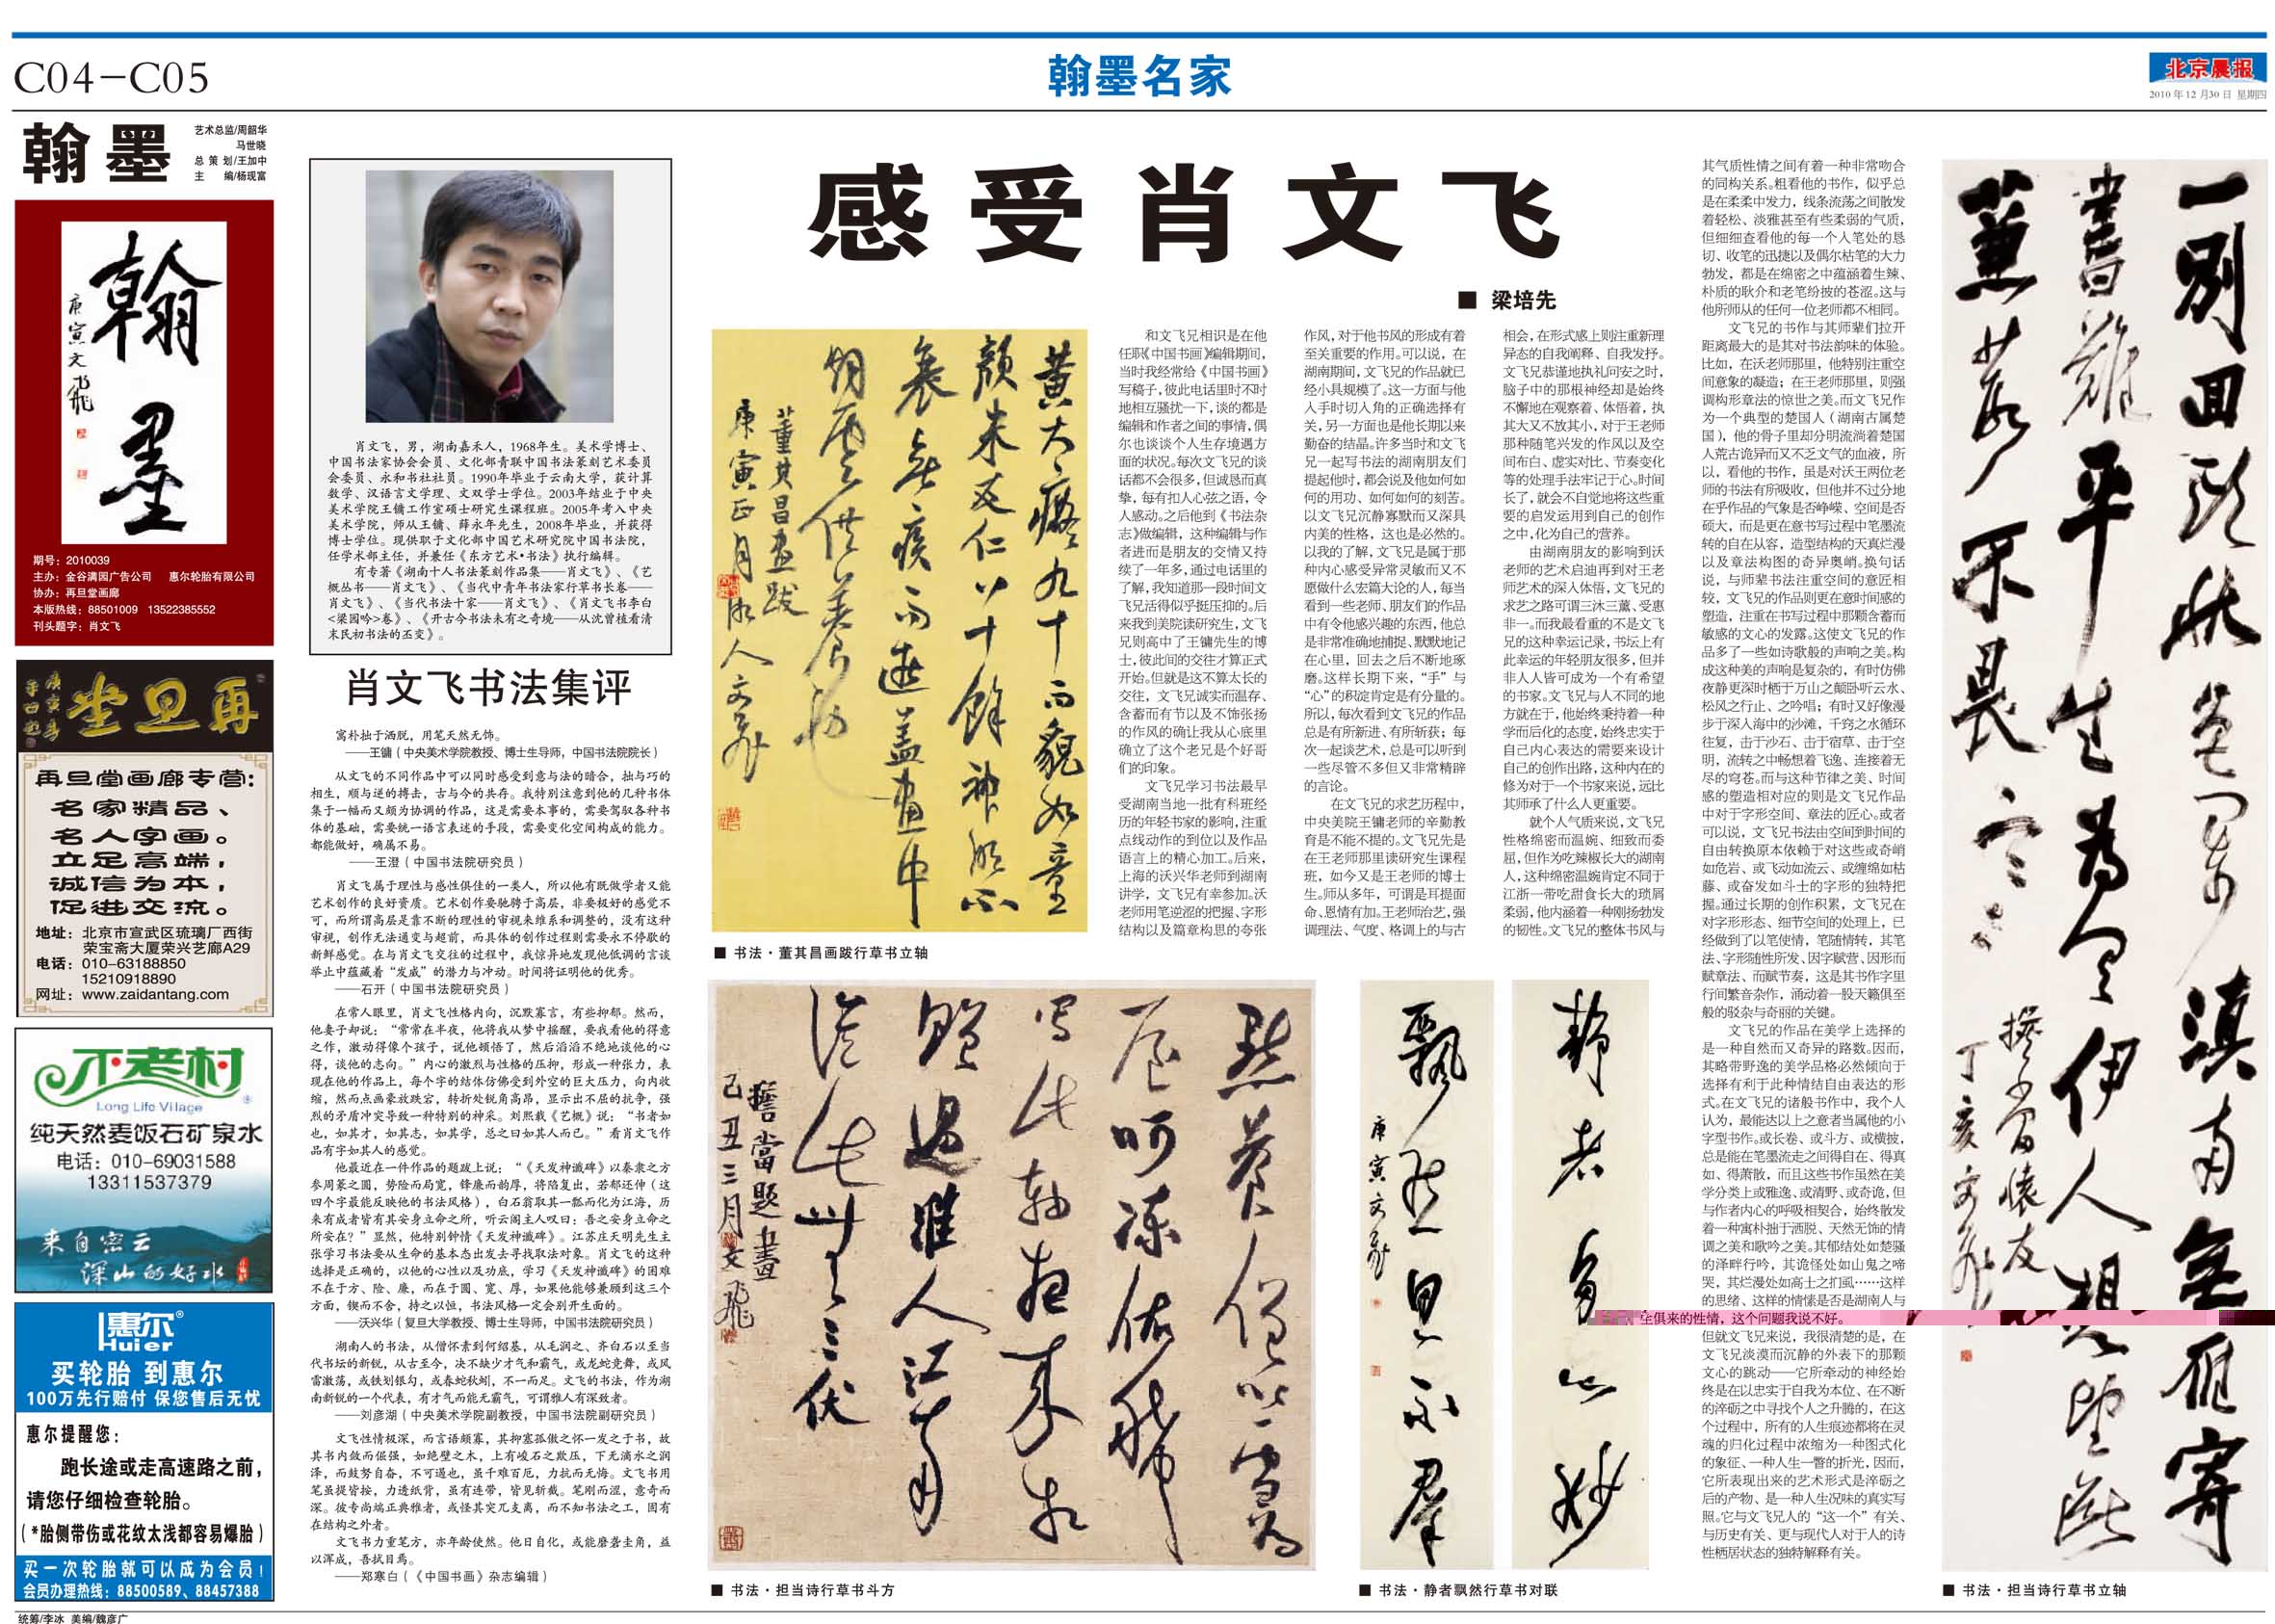 C04-C05
翰墨名家
北京晨报
2010年12月30日 星期四
翰墨
艺术总监/周韶华
马世晓
总策划/王加中
主 编/杨现富
翰墨
庚寅文飞书
期号：2010039
主办：金谷满园广告公司 惠尔轮胎有限公司
协办：再旦堂画廊
本版热线：88501009 13522385552
刊头题字：肖文飞
再旦堂
再旦堂画廊专营：
名家精品、
名人字画。
立足高端，
诚信为本，
促进交流。
地址：北京市宣武区琉璃厂西街
荣宝斋大厦荣兴艺廊A29
电话：010-63188850
15210918890
网址：www.zaidantang.com
不老村
Long Life Village
纯天然麦饭石矿泉水
电话：010-69031588
13311537379
来自密云
深山的好水
惠尔®
Huier
买轮胎 到惠尔
100万先行赔付 保您售后无忧
惠尔提醒您：
跑长途或走高速路之前，
请您仔细检查轮胎。
（*胎侧带伤或花纹太浅都容易爆胎）
买一次轮胎就可以成为会员！
会员办理热线：88500589、88457388
统筹/李冰 美编/魏彦广
肖文飞，男，湖南嘉禾人，1968年生。美术学博士、
中国书法家协会会员、文化部青联中国书法篆刻艺术委员
会委员、永和书社社员。1990年毕业于云南大学，获计算
数学、汉语言文学理、文双学士学位。2003年结业于中央
美术学院王镛工作室硕士研究生课程班。2005年考入中央
美术学院，师从王镛、薛永年先生，2008年毕业，并获得
博士学位。现供职于文化部中国艺术研究院中国书法院，
任学术部主任，并兼任《东方艺术•书法》执行编辑。
有专著《湖南十人书法篆刻作品集——肖文飞》、《艺
概丛书——肖文飞》、《当代中青年书法家行草书长卷——
肖文飞》、《当代书法十家——肖文飞》、《肖文飞书李白
<梁园吟>卷》、《开古今书法未有之奇境——从沈曾植看清
末民初书法的丕变》。
肖文飞书法集评
寓朴拙于洒脱，用笔天然无饰。
——王镛（中央美术学院教授、博士生导师，中国书法院院长）
从文飞的不同作品中可以同时感受到意与法的暗合，拙与巧的
相生，顺与逆的搏击，古与今的共存。我特别注意到他的几种书体
集于一幅而又颇为协调的作品，这是需要本事的，需要驾驭各种书
体的基础，需要统一语言表述的手段，需要变化空间构成的能力。
都能做好，确属不易。
——王澄（中国书法院研究员）
肖文飞属于理性与感性俱佳的一类人，所以他有既做学者又能
艺术创作的良好资质。艺术创作要驰骋于高层，非要极好的感觉不
可，而所谓高层是靠不断的理性的审视来维系和调整的，没有这种
审视，创作无法通变与超前，而具体的创作过程则需要永不停歇的
新鲜感觉。在与肖文飞交往的过程中，我惊异地发现他低调的言谈
举止中蕴藏着“发威”的潜力与冲动。时间将证明他的优秀。
——石开（中国书法院研究员）
在常人眼里，肖文飞性格内向，沉默寡言，有些抑郁。然而，
他妻子却说：“常常在半夜，他将我从梦中摇醒，要我看他的得意
之作，激动得像个孩子，说他顿悟了，然后滔滔不绝地谈他的心
得，谈他的志向。”内心的激烈与性格的压抑，形成一种张力，表
现在他的作品上，每个字的结体仿佛受到外空的巨大压力，向内收
缩，然而点画豪放跌宕，转折处锐角高昂，显示出不屈的抗争，强
烈的矛盾冲突导致一种特别的神采。刘熙载《艺概》说：“书者如
也，如其才，如其志，如其学，总之曰如其人而已。”看肖文飞作
品有字如其人的感觉。
他最近在一件作品的题跋上说：“《天发神谶碑》以秦隶之方
参周篆之圆，势险而局宽，锋廉而韵厚，将陷复出，若郁还伸（这
四个字最能反映他的书法风格），白石翁取其一瓢而化为江海，历
来有成者皆有其安身立命之所，听云阁主人叹曰：吾之安身立命之
所安在？”显然，他特别钟情《天发神谶碑》。江苏庄天明先生主
张学习书法要从生命的基本态出发去寻找取法对象。肖文飞的这种
选择是正确的，以他的心性以及功底，学习《天发神谶碑》的困难
不在于方、险、廉，而在于圆、宽、厚，如果他能够兼顾到这三个
方面，锲而不舍，持之以恒，书法风格一定会别开生面的。
——沃兴华（复旦大学教授、博士生导师，中国书法院研究员）
湖南人的书法，从僧怀素到何绍基，从毛润之、齐白石以至当
代书坛的新锐，从古至今，决不缺少才气和霸气，或龙蛇竞舞，或风
雷激荡，或铁划银勾，或春蛇秋蚓，不一而足。文飞的书法，作为湖
南新锐的一个代表，有才气而能无霸气，可谓雅人有深致者。
——刘彦湖（中央美术学院副教授，中国书法院副研究员）
文飞性情极深，而言语颇寡，其抑塞孤傲之怀一发之于书，故
其书内敛而倔强，如绝壁之木，上有峻石之欺压，下无滴水之润
泽，而鼓努自奋，不可遏也，虽千难百厄，力抗而无悔。文飞书用
笔虽提皆按，力透纸背，虽有连带，皆见斩截。笔刚而涩，意奇而
深。彼专尚端正典雅者，或怪其突兀支离，而不知书法之工，固有
在结构之外者。
文飞书力重笔方，亦年龄使然。他日自化，或能磨砻圭角，益
以浑成，吾拭目焉。
——郑寒白（《中国书画》杂志编辑）
感受肖文飞
■ 梁培先
黄大痴九十而貌如童
颜米友仁八十余神明不
衰无疾而逝盖画中
烟云供养也
董其昌画跋
庚寅正月湘人文飞
■ 书法·董其昌画跋行草书立轴
和文飞兄相识是在他
任职《中国书画》编辑期间，
当时我经常给《中国书画》
写稿子，彼此电话里时不时
地相互骚扰一下，谈的都是
编辑和作者之间的事情，偶
尔也谈谈个人生存境遇方
面的状况。每次文飞兄的谈
话都不会很多，但诚恳而真
挚，每有扣人心弦之语，令
人感动。之后他到《书法杂
志》做编辑，这种编辑与作
者进而是朋友的交情又持
续了一年多，通过电话里的
了解，我知道那一段时间文
飞兄活得似乎挺压抑的。后
来我到美院读研究生，文飞
兄则高中了王镛先生的博
士，彼此间的交往才算正式
开始。但就是这不算太长的
交往，文飞兄诚实而温存、
含蓄而有节以及不饰张扬
的作风的确让我从心底里
确立了这个老兄是个好哥
们的印象。
文飞兄学习书法最早
受湖南当地一批有科班经
历的年轻书家的影响，注重
点线动作的到位以及作品
语言上的精心加工。后来，
上海的沃兴华老师到湖南
讲学，文飞兄有幸参加。沃
老师用笔逆涩的把握、字形
结构以及篇章构思的夸张
作风，对于他书风的形成有着
至关重要的作用。可以说，在
湖南期间，文飞兄的作品就已
经小具规模了。这一方面与他
入手时切入角的正确选择有
关，另一方面也是他长期以来
勤奋的结晶。许多当时和文飞
兄一起写书法的湖南朋友们
提起他时，都会说及他如何如
何的用功、如何如何的刻苦。
以文飞兄沉静寡默而又深具
内美的性格，这也是必然的。
以我的了解，文飞兄是属于那
种内心感受异常灵敏而又不
愿做什么宏篇大论的人，每当
看到一些老师、朋友们的作品
中有令他感兴趣的东西，他总
是非常准确地捕捉、默默地记
在心里，回去之后不断地琢
磨。这样长期下来，“手”与
“心”的积淀肯定是有分量的。
所以，每次看到文飞兄的作品
总是有所新进、有所斩获；每
次一起谈艺术，总是可以听到
一些尽管不多但又非常精辟
的言论。
在文飞兄的求艺历程中，
中央美院王镛老师的辛勤教
育是不能不提的。文飞兄先是
在王老师那里读研究生课程
班，如今又是王老师的博士
生。师从多年，可谓是耳提面
命、恩情有加。王老师治艺，强
调理法、气度、格调上的与古
相会，在形式感上则注重新理
异态的自我阐释、自我发抒。
文飞兄恭谨地执礼问安之时，
脑子中的那根神经却是始终
不懈地在观察着、体悟着，执
其大又不放其小，对于王老师
那种随笔兴发的作风以及空
间布白、虚实对比、节奏变化
等的处理手法牢记于心。时间
长了，就会不自觉地将这些重
要的启发运用到自己的创作
之中，化为自己的营养。
由湖南朋友的影响到沃
老师的艺术启迪再到对王老
师艺术的深入体悟，文飞兄的
求艺之路可谓三沐三薰、受惠
非一。而我最看重的不是文飞
兄的这种幸运记录，书坛上有
此幸运的年轻朋友很多，但并
非人人皆可成为一个有希望
的书家。文飞兄与人不同的地
方就在于，他始终秉持着一种
学而后化的态度，始终忠实于
自己内心表达的需要来设计
自己的创作出路，这种内在的
修为对于一个书家来说，远比
其师承了什么人更重要。
就个人气质来说，文飞兄
性格绵密而温婉、细致而委
屈，但作为吃辣椒长大的湖南
人，这种绵密温婉肯定不同于
江浙一带吃甜食长大的琐屑
柔弱，他内涵着一种刚扬勃发
的韧性。文飞兄的整体书风与
其气质性情之间有着一种非常吻合
的同构关系。粗看他的书作，似乎总
是在柔柔中发力，线条流荡之间散发
着轻松、淡雅甚至有些柔弱的气质，
但细细查看他的每一个入笔处的恳
切、收笔的迅捷以及偶尔枯笔的大力
勃发，都是在绵密之中蕴涵着生辣、
朴质的耿介和老笔纷披的苍涩。这与
他所师从的任何一位老师都不相同。
文飞兄的书作与其师辈们拉开
距离最大的是其对书法韵味的体验。
比如，在沃老师那里，他特别注重空
间意象的凝造；在王老师那里，则强
调构形章法的惊世之美。而文飞兄作
为一个典型的楚国人（湖南古属楚
国），他的骨子里却分明流淌着楚国
人荒古诡异而又不乏文气的血液，所
以，看他的书作，虽是对沃王两位老
师的书法有所吸收，但他并不过分地
在乎作品的气象是否峥嵘、空间是否
硕大，而是更在意书写过程中笔墨流
转的自在从容，造型结构的天真烂漫
以及章法构图的奇异奥峭。换句话
说，与师辈书法注重空间的意匠相
较，文飞兄的作品则更在意时间感的
塑造，注重在书写过程中那颗含蓄而
敏感的文心的发露。这使文飞兄的作
品多了一些如诗歌般的声响之美。构
成这种美的声响是复杂的，有时仿佛
夜静更深时栖于万山之颠卧听云水、
松风之行止、之吟唱；有时又好像漫
步于深入海中的沙滩，千穹之水循环
往复，击于沙石、击于宿草、击于空
明，流转之中畅想着飞逸、连接着无
尽的穹苍。而与这种节律之美、时间
感的塑造相对应的则是文飞兄作品
中对于字形空间、章法的匠心。或者
可以说，文飞兄书法由空间到时间的
自由转换原本依赖于对这些或奇峭
如危岩、或飞动如流云、或缠绵如枯
藤、或奋发如斗士的字形的独特把
握。通过长期的创作积累，文飞兄在
对字形形态、细节空间的处理上，已
经做到了以笔使情，笔随情转，其笔
法、字形随性所发、因字赋营、因形而
赋章法、而赋节奏，这是其书作字里
行间繁音杂作，涌动着一股天籁俱至
般的驳杂与奇丽的关键。
文飞兄的作品在美学上选择的
是一种自然而又奇异的路数。因而，
其略带野逸的美学品格必然倾向于
选择有利于此种情结自由表达的形
式。在文飞兄的诸般书作中，我个人
认为，最能达以上之意者当属他的小
字型书作。或长卷、或斗方、或横披，
总是能在笔墨流走之间得自在、得真
如、得萧散，而且这些书作虽然在美
学分类上或雅逸、或清野、或奇诡，但
与作者内心的呼吸相契合，始终散发
着一种寓朴拙于洒脱、天然无饰的情
调之美和歌吟之美。其郁结处如楚骚
的泽畔行吟，其诡怪处如山鬼之啼
哭，其烂漫处如高士之扪虱……这样
的思绪、这样的情愫是否是湖南人与
生俱来的性情，这个问题我说不好。
但就文飞兄来说，我很清楚的是，在
文飞兄淡漠而沉静的外表下的那颗
文心的跳动——它所牵动的神经始
终是在以忠实于自我为本位、在不断
的淬砺之中寻找个人之升腾的，在这
个过程中，所有的人生痕迹都将在灵
魂的归化过程中浓缩为一种图式化
的象征、一种人生一瞥的折光，因而，
它所表现出来的艺术形式是淬砺之
后的产物、是一种人生况味的真实写
照。它与文飞兄人的“这一个”有关、
与历史有关、更与现代人对于人的诗
性栖居状态的独特解释有关。
担当题画
己丑三月文飞
■ 书法·担当诗行草书斗方
静者多心妙
飘然思不群
庚寅文飞
■ 书法·静者飘然行草书对联
一别回头秋色里 滇南无雁寄
书难 平生为君伊人想 望断
蒹葭不畏寒
担当怀友
丁亥文飞
■ 书法·担当诗行草书立轴